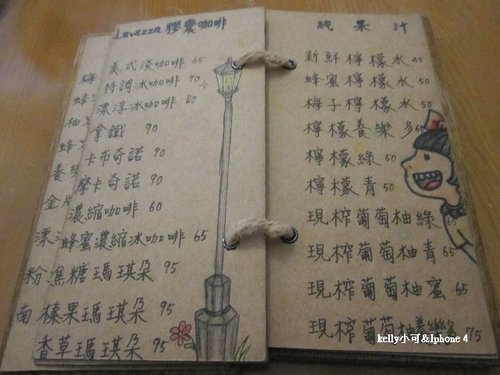 Lavazza 膠囊咖啡
美式淡咖啡 65
特調冰咖啡 70
漂浮冰咖啡 80
拿鐵 90
卡布奇諾 90
摩卡奇諾 90
濃縮咖啡 60
蜂蜜濃縮冰咖啡 65
焦糖瑪琪朵 95
榛果瑪琪朵 95
香草瑪琪朵 95
梅
蜂
柚
蜂
養
金
漂
粉
南
純果汁
新鮮檸檬水 45
蜂蜜檸檬水 50
梅子檸檬水 50
檸檬養樂多 65
檸檬綠 50
檸檬青 50
現榨葡萄柚綠
現榨葡萄柚青 65
現榨葡萄柚蜜 65
現榨葡萄柚養樂多 75
kelly小可&Iphone 4